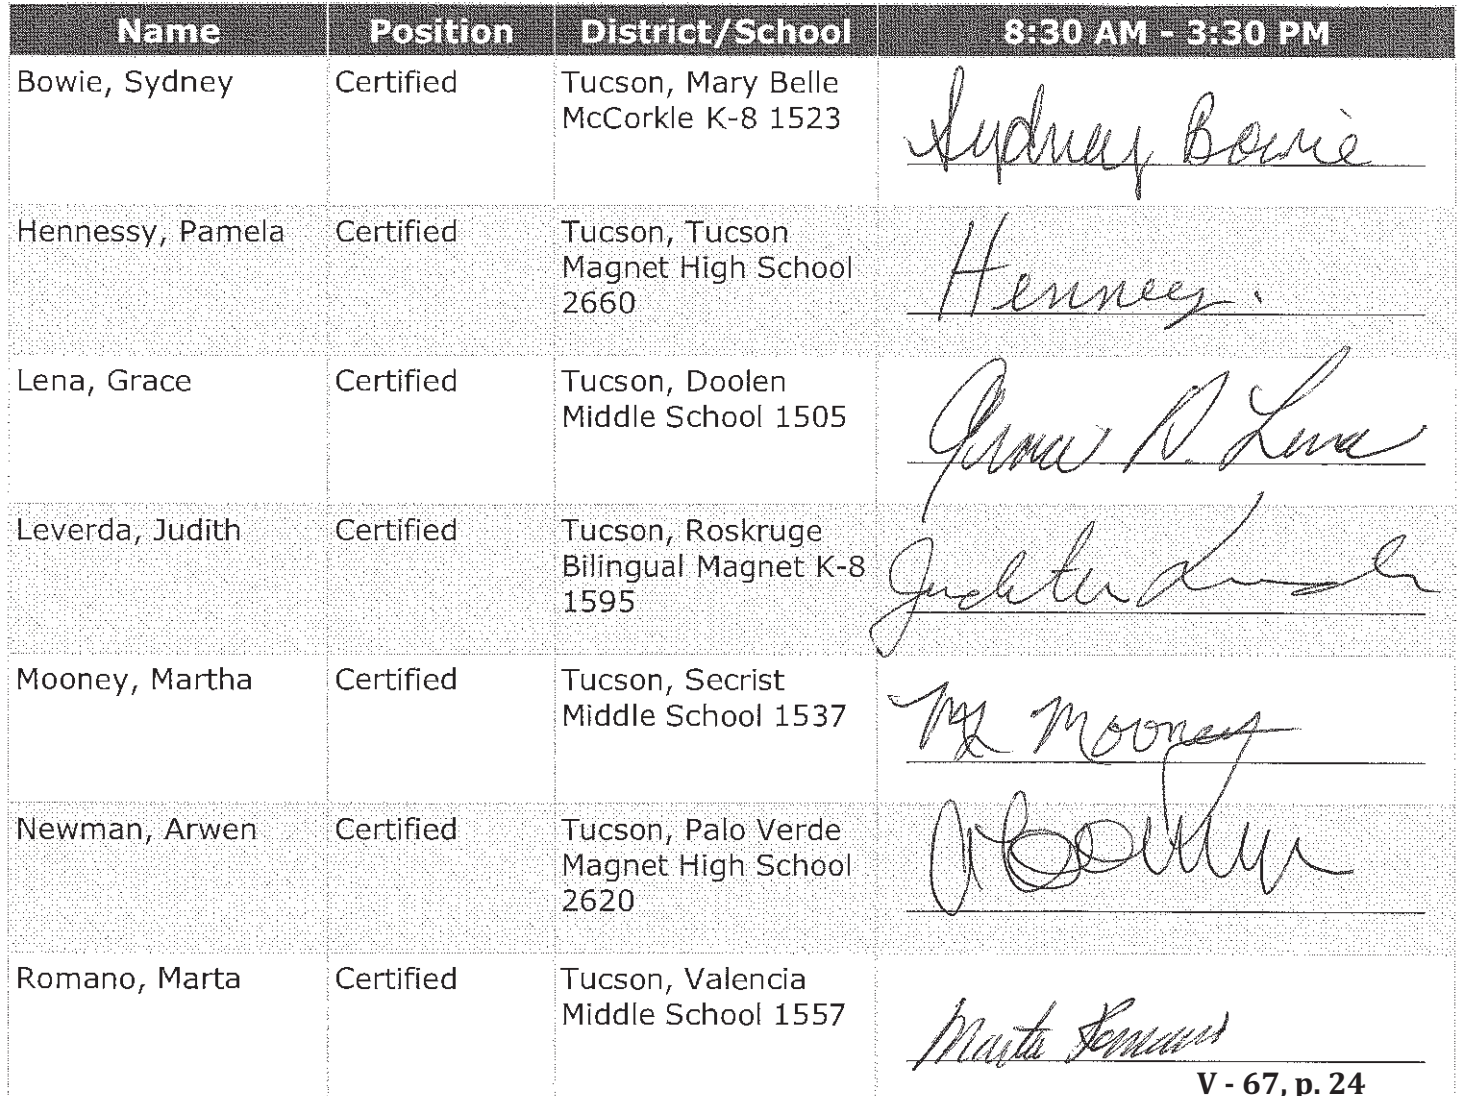 Name Position District/School 8:30 AM - 3:30 PM
Bowie, Sydney Certified Tucson, Mary Belle
McCorkle K-8 1523
Sydney Bowie
Hennessy, Pamela Certified Tucson, Tucson
Magnet High School
2660
Lena, Grace Certified Tucson, Doolen
Middle School 1505
Grace D. Lena
Leverda, Judith Certified Tucson, Roskruge
Bilingual Magnet K-8
1595
Judith
Mooney, Martha Certified Tucson, Secrist
Middle School 1537
Mooney
Newman, Arwen Certified Tucson, Palo Verde
Magnet High School
2620
Romano, Marta Certified Tucson, Valencia
Middle School 1557
Marta Romano
V - 67, p. 24